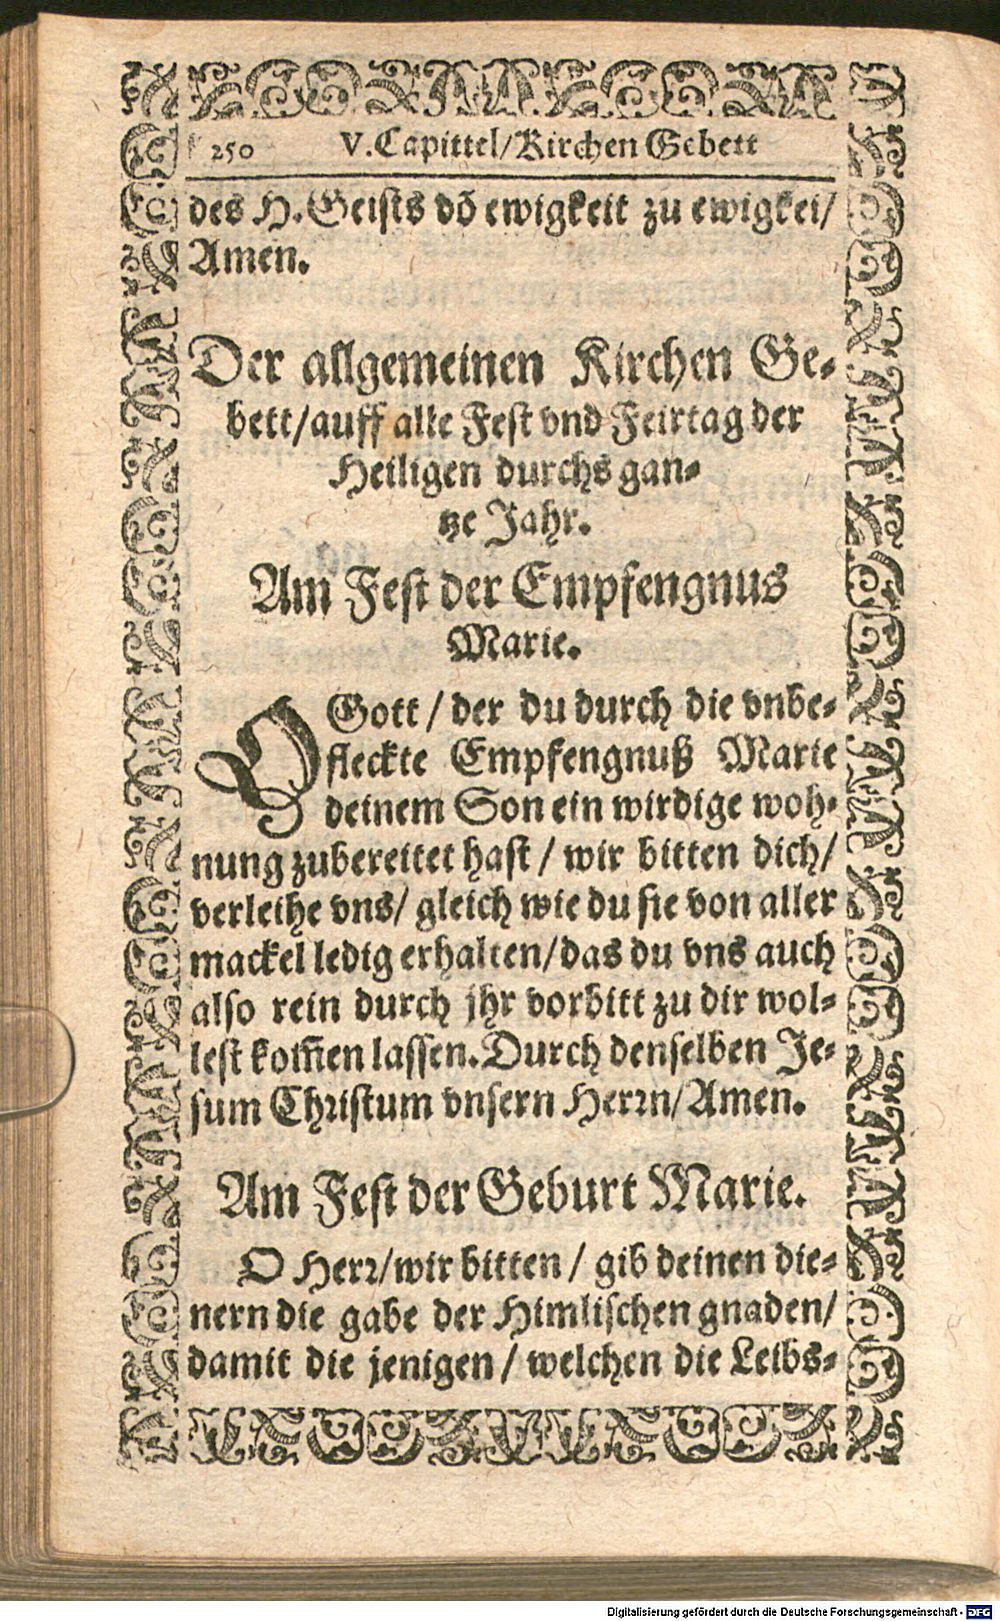 250 V. Capittel/Kirchen Gebett
des H. Geists võ ewigkeit zu ewigkei/
Amen.
Der allgemeinen Kirchen Ge-
bett/auff alle Fest vnd Feirtag der
Heiligen durchs gan-
tze Jahr.
Am Fest der Empfengnus
Marie.
O Gott / der du durch die vnbe-
fleckte Empfengnuß Marie
deinem Son ein wirdige woh-
nung zubereitet hast / wir bitten dich/
verleihe vns/ gleich wie du sie von aller
mackel ledig erhalten/das du vns auch
also rein durch jhr vorbitt zu dir wol-
lest kom̃en lassen. Durch denselben Je-
sum Christum vnsern Herrn/Amen.
Am Fest der Geburt Marie.
O Herr/wir bitten / gib deinen die-
nern die gabe der Himlischen gnaden/
damit die jenigen / welchen die Leibs-
Digitalisierung gefördert durch die Deutsche Forschungsgemeinschaft - DFG